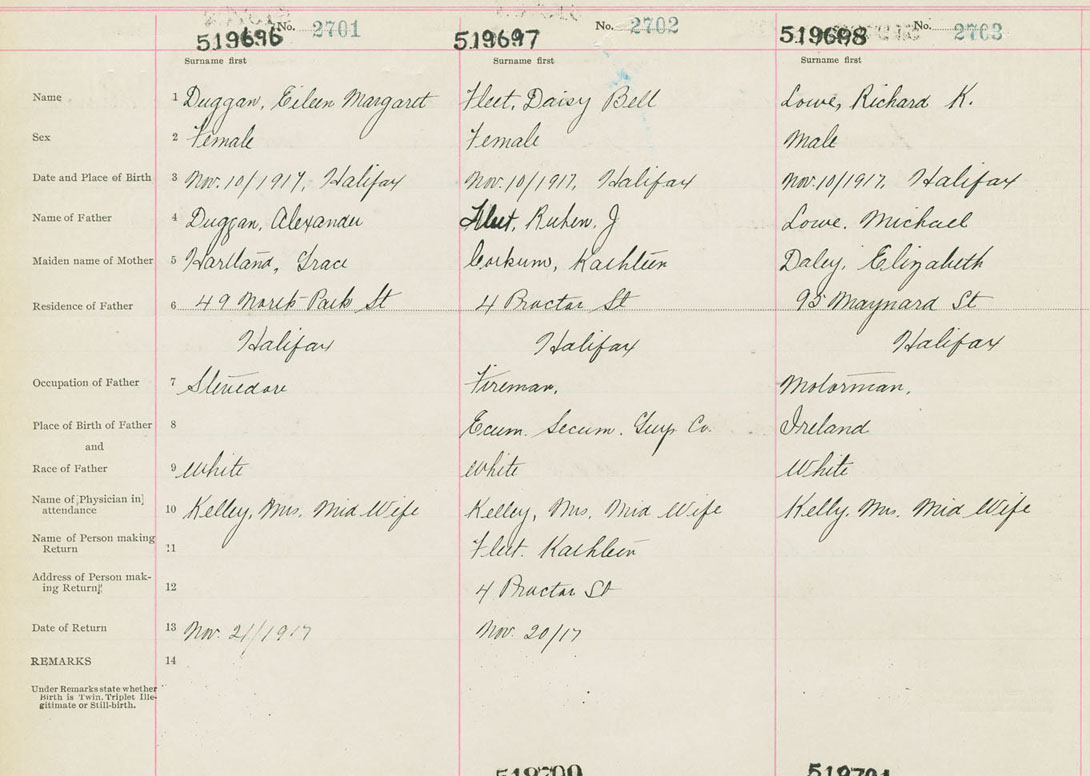 No. 2701 No. 2702 No. 2703
519696 519697 519698
Surname first Surname first Surname first
Name 1 Duggan, Eileen Margaret Fleet, Daisy Bell Lowe, Richard K.
Sex 2 Female Female Male
Date and Place of Birth 3 Nov. 10/1917, Halifax Nov. 10/1917, Halifax Nov. 10/1917, Halifax
Name of Father 4 Duggan, Alexander Fleet, Ruben, J Lowe. Michael
Maiden name of Mother 5 Hartland, Grace Corkum, Kathleen Daley, Elizabeth
Residence of Father 6 49 North Park St 4 Proctor St 95 Maynard St
Halifax Halifax Halifax
Occupation of Father 7 Stevedore Fireman, Motorman,
Place of Birth of Father 8 Ecum. Secum. Guys Co. Ireland
and
Race of Father 9 White White White
Name of Physician in
attendance 10 Kelley, Mrs. Mid Wife Kelley, Mrs. Mid Wife Kelly. Mrs. Mid Wife
Name of Person making
Return 11 Fleet. Kathleen
Address of Person mak-
ing Return 12 4 Proctor St
Date of Return 13 Nov. 21/1917 Nov. 20/17
REMARKS 14
Under Remarks state whether
Birth is Twin, Triplet Ille-
gitimate or Still-birth.
519700 519701